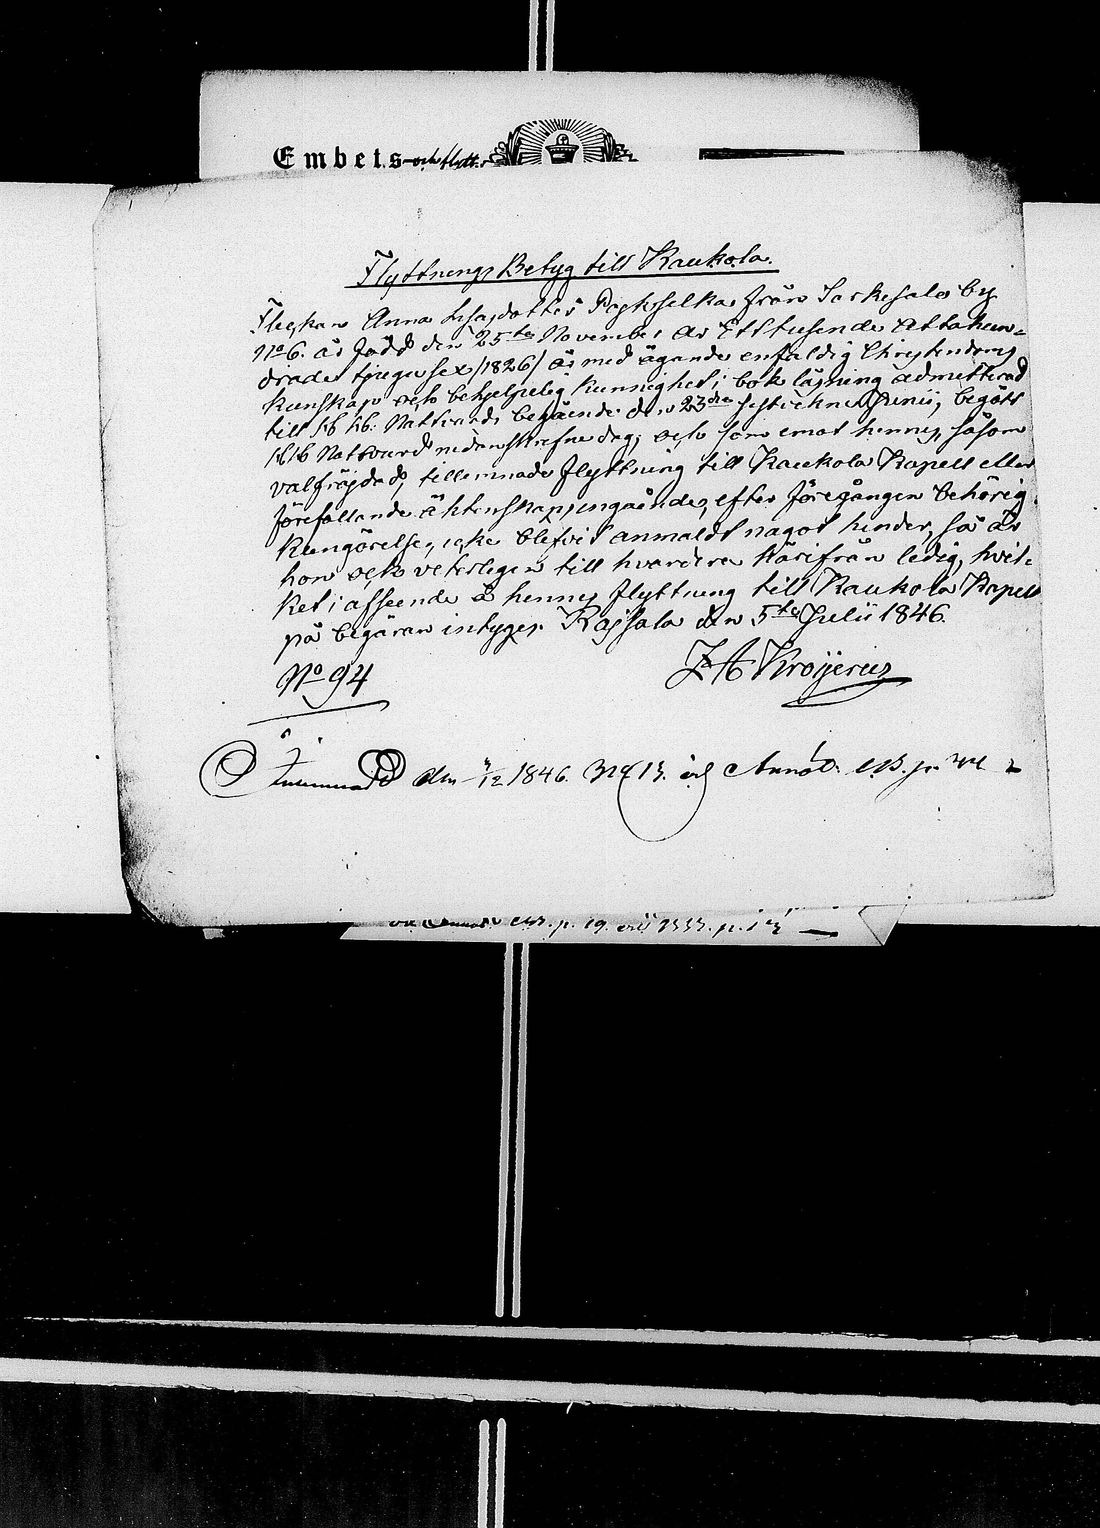 Embets och flytt
Flyttnings Betyg till Kaukola.
Flickan Anna Lisasdotter från by
No 6. är född den 25te November år Ett tusende Attahun-
drade tjugu sex /1826/ är med ägande enfaldig Christendoms
kunskap och behjelpelig kunnighet i bok läsning admitterad
till Nattvards begående den 23die Junii, begått
Nattvard nedanskrefne dag; och som emot henne, såsom
välfräjdad, tillernnade flyttning till Kaukola Kapell eller
förefallande äktenskap ingående, efter föregången behörig
kungörelse, icke blifvit anmäldt något hinder, så är
hon ock veterligen till hvardera härifrån ledig, hvil-
ket i afseende å hennes flyttning till Kaukola Kapell
på begäran intygas. Räisälä den 5te Julii 1846.
No 94
Kroijerus
den 1846. No 13. Annot. p.
p. 19. p.